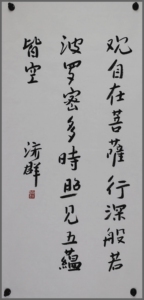 观自在菩薩行深般若
波罗密多時照见五蕴
皆空
济群